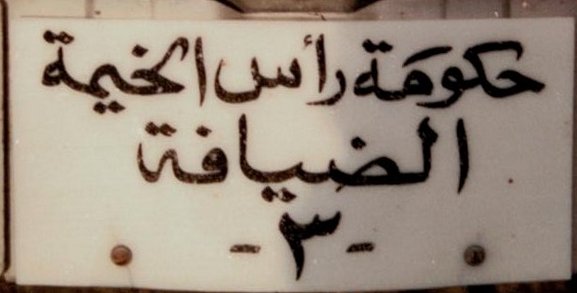 حكومة رأس الخيمة
الضيافة
-٣-